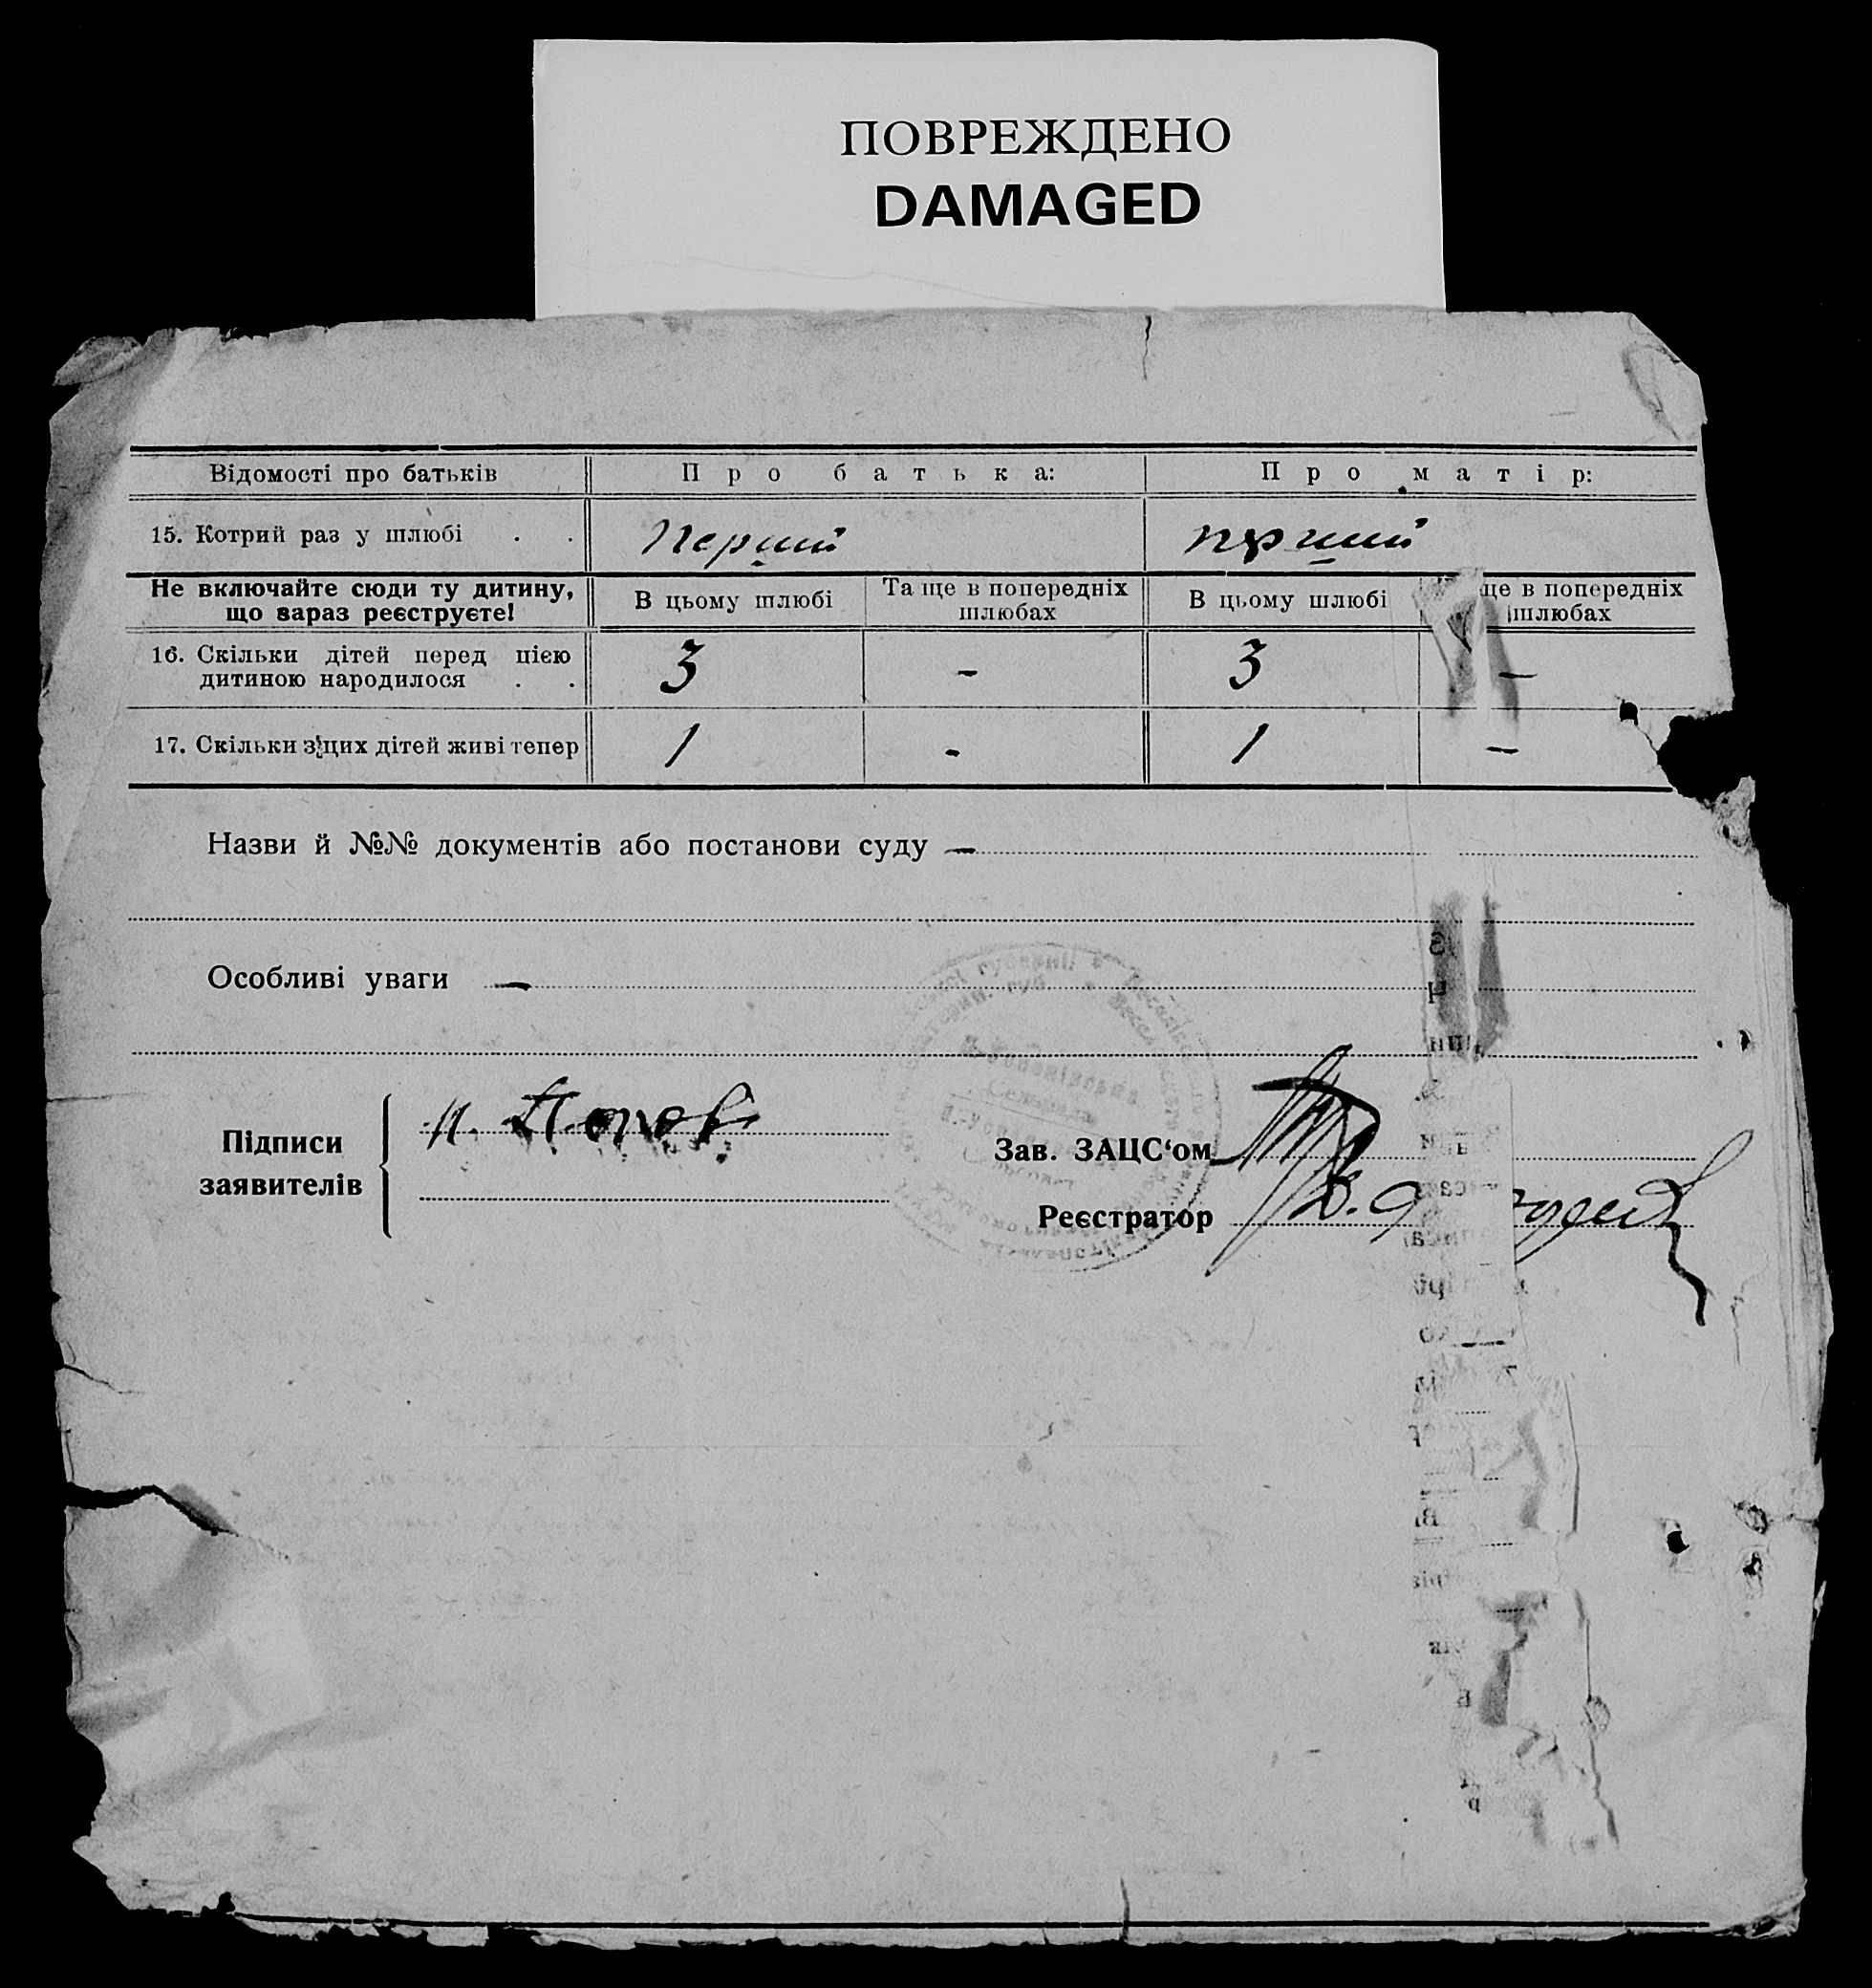 ПОВРЕЖДЕНО
DAMAGED
Відомості про батьків Про батька: Про матір:
15. Котрий раз у шлюбі . . Перший перший
Не включайте сюди ту дитину, що зараз реєструєте! В цьому шлюбі Та ще в попередніх шлюбах В цьому шлюбі ще в попередніх шлюбах
16. Скільки дітей перед цією дитиною народилося . . 3 - 3 —
17. Скільки з цих дітей живі тепер 1 - 1 —
Назви й №№ документів або постанови суду —
Особливі уваги —
Підписи заявителів
Зав. ЗАЦС‘ом
Реєстратор